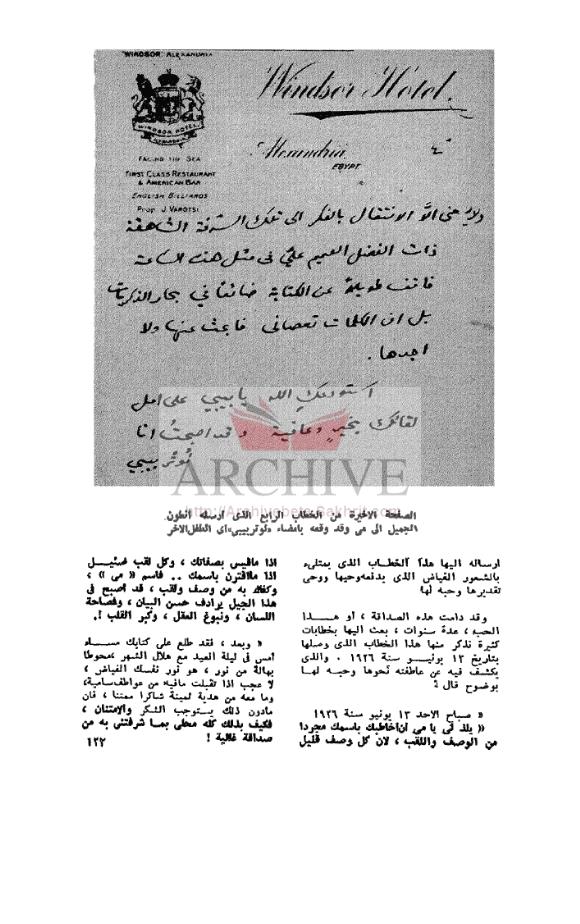 "WINDSOR" ALEXANDRIA
Windsor Hotel.
WINDSOR HOTEL
Alexandria
EGYPT
٤
FACING THE SEA
FIRST CLASS RESTAURANT
& AMERICAN BAR
ENGLISH BILLIARDS
Prop. J. VAROTSI
الانتقال بالفكر الى تلك الشرفة الشاهقة
ذات الفضل العميم عليّ في مثل هذه الساعة
فاقف طويلاً عن الكتابة ضائعاً في بحار الذكريات
بل ان الكلمات تعصاني فابحث عنها ولا
اجدها .
استودعكِ الله يا بيبي على امل
لقائك بخيرٍ وعافية وقد اصبحتُ انا
توتر بيبي
ARCHIVE
http://Archivebeta.Sakhrit.com
الصفحة الاخيرة من الخطاب الرابع الذى أرسله انطون
الجميل الى مى وقد وقعه بامضاء «توتربيبى» أى الطفل الآخر
ارساله اليها هذا الخطاب الذى يمتلىء
بالشعور الفياض الذى يدفعه وحيها ووحى
تقديرها وحبه لها
وقد دامت هذه الصداقة ، أو هذا
الحب ، عدة سنوات ، بعث اليها بخطابات
كثيرة نذكر منها هذا الخطاب الذى وصلها
بتاريخ ١٣ يونيو سنة ١٩٢٦ . والذى
يكشف فيه عن عاطفته نحوها وحبه لها
بوضوح قال :
« صباح الاحد ١٣ يونيو سنة ١٩٢٦
« يلذ لى يا مى أن أخاطبك باسمك مجردا
من الوصف واللقب ، لان كل وصف قليل
اذا ماقيس بصفاتك ، وكل لقب ضئيل
اذا ما اقترن باسمك .. فاسم « مى » ،
وكفى به من وصف ولقب ، قد أصبح فى
هذا الجيل يرادف حسن البيان ، وفصاحة
اللسان ، ونبوغ العقل ، وكبر القلب !.
« وبعد ، فقد طلع على كتابك مساء
أمس فى ليلة العيد مع هلال الشهر ،محوطا
بهالة من نور ، هو نور نفسك الفياض ،
لا عجب اذا تقبلت مافيه من عواطف سامية،
وما معه من هدية ثمينة شاكرا ممتنا ، فان
مادون ذلك يستوجب الشكر والامتنان ،
فكيف بذلك كله محلى بما شرفتنى به من
صداقة غالية !
١٢٢